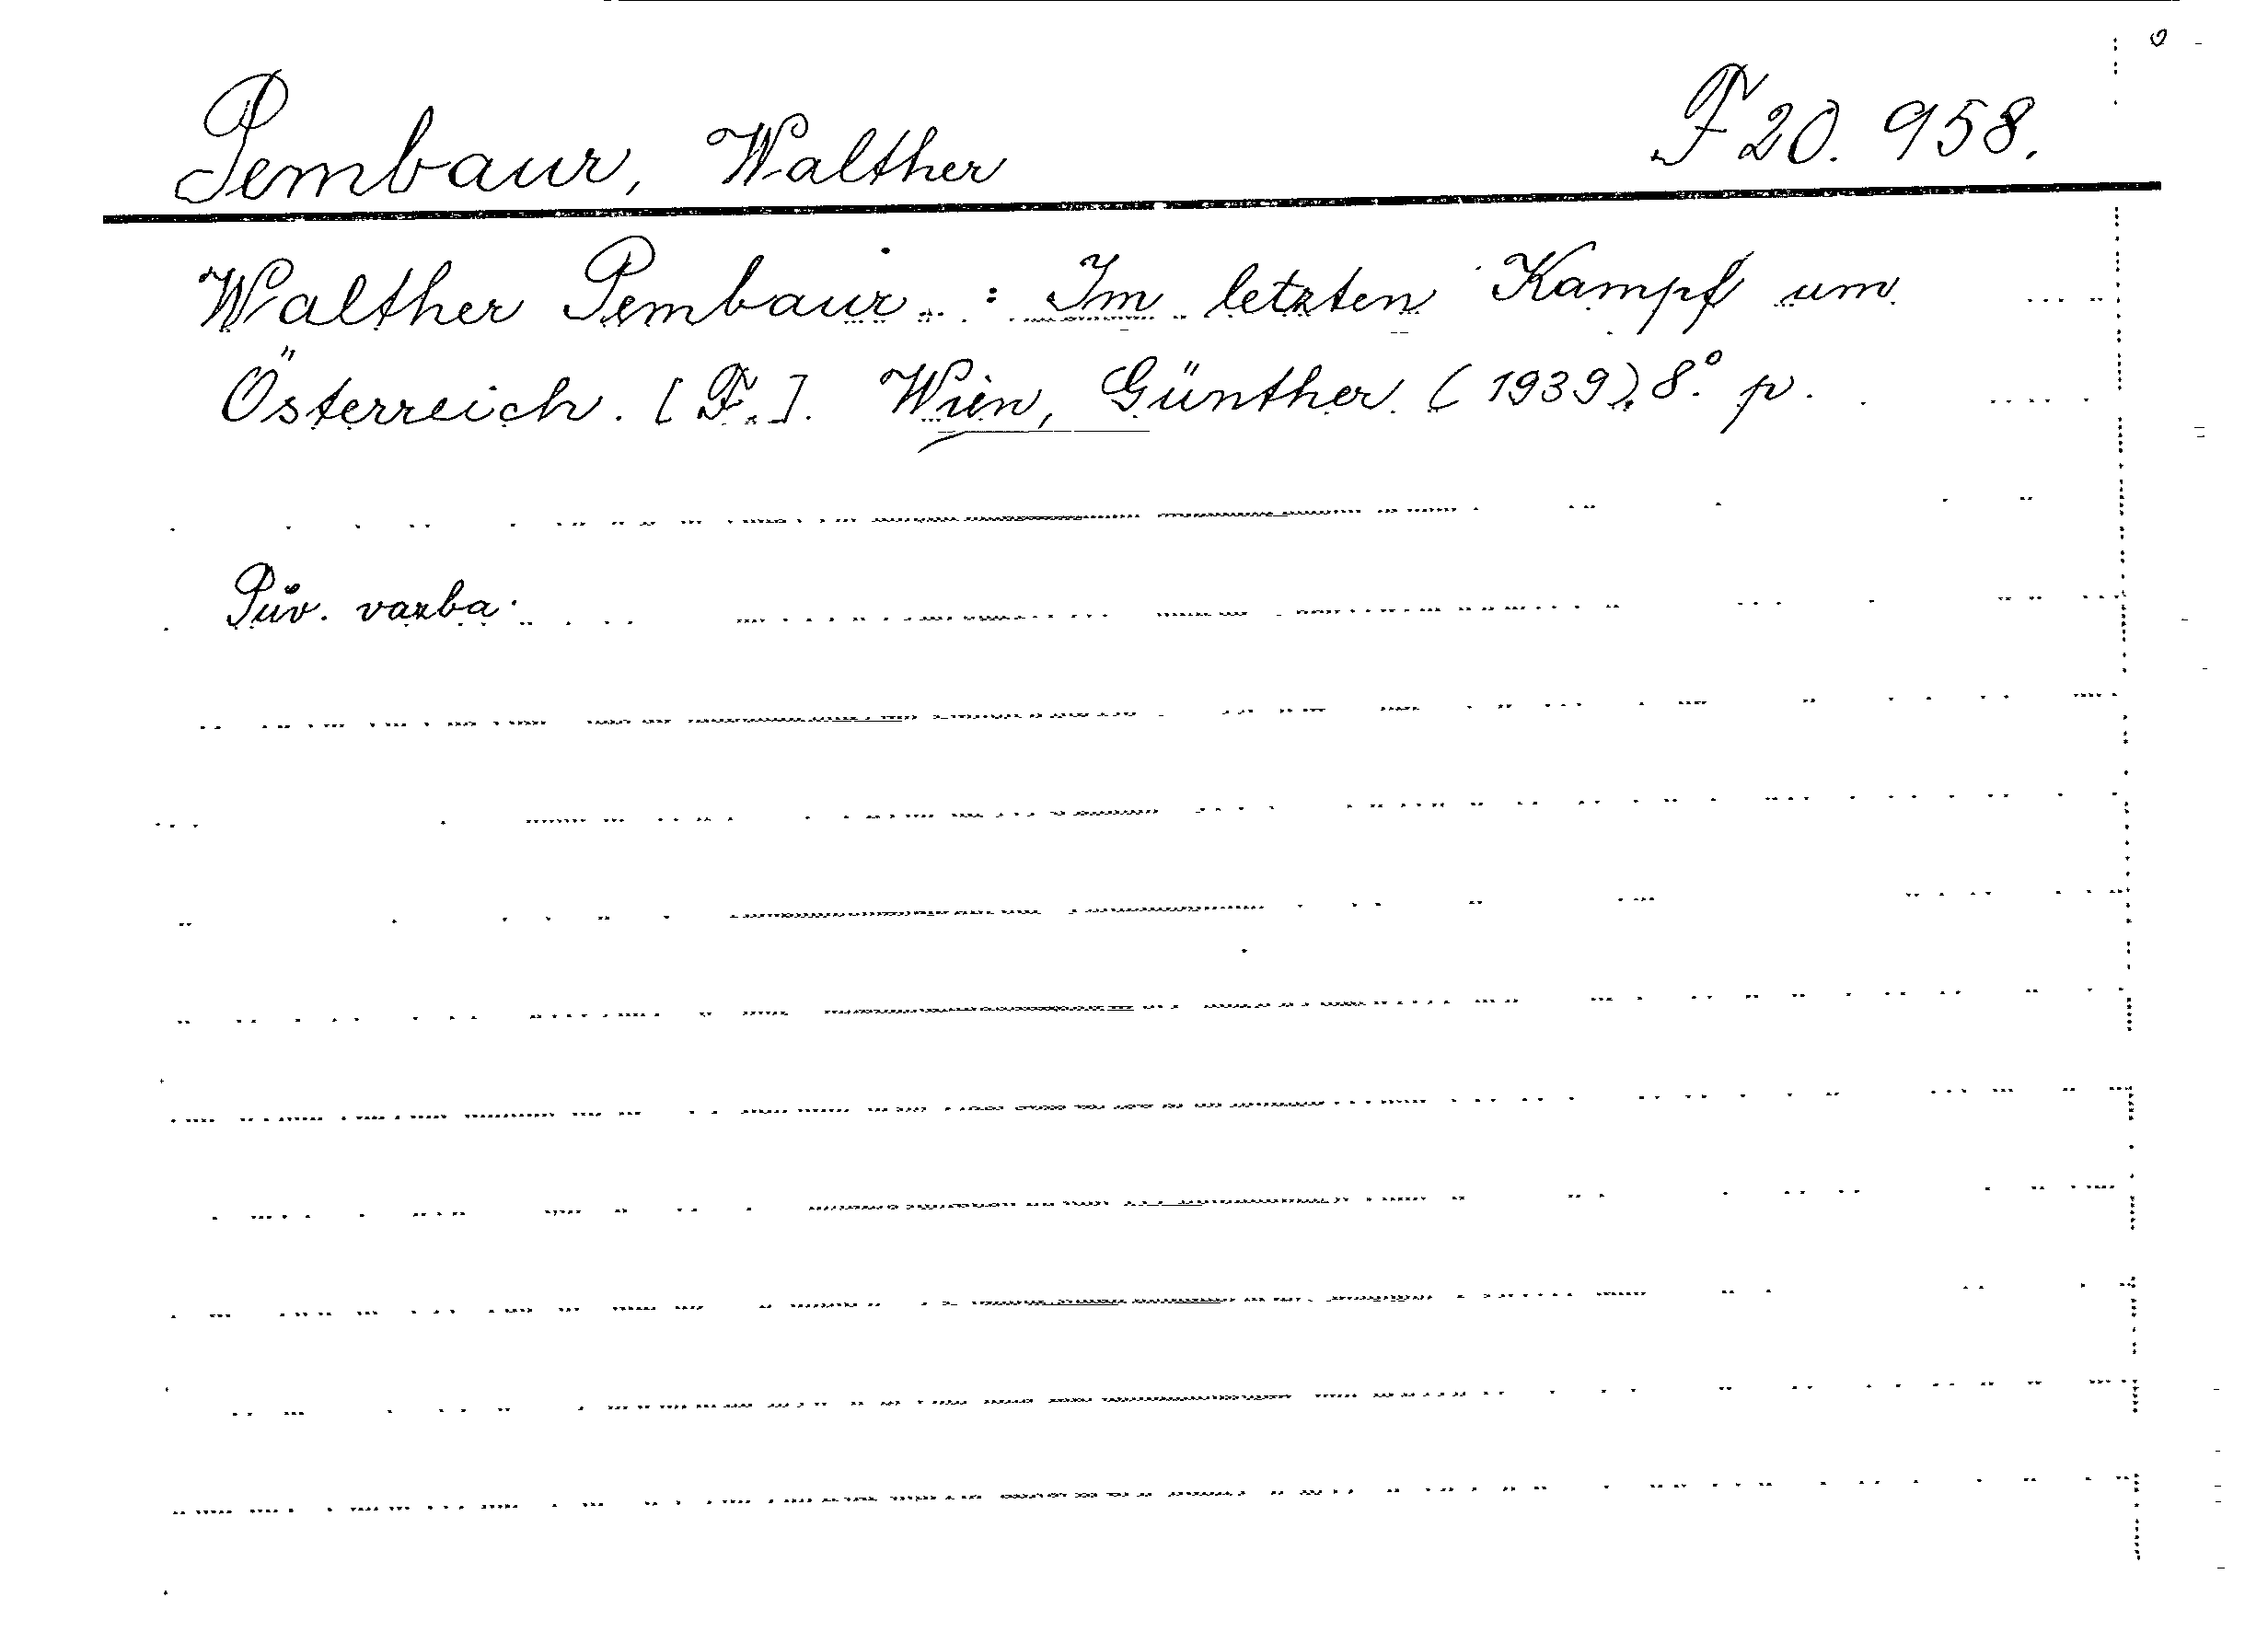 Pembaur, Walther F 20. 958.
Walther Pembaur : Im letzten Kampf um
Österreich. [F.]. Wien, Günther (1939). 8° p.
Pův. vazba.